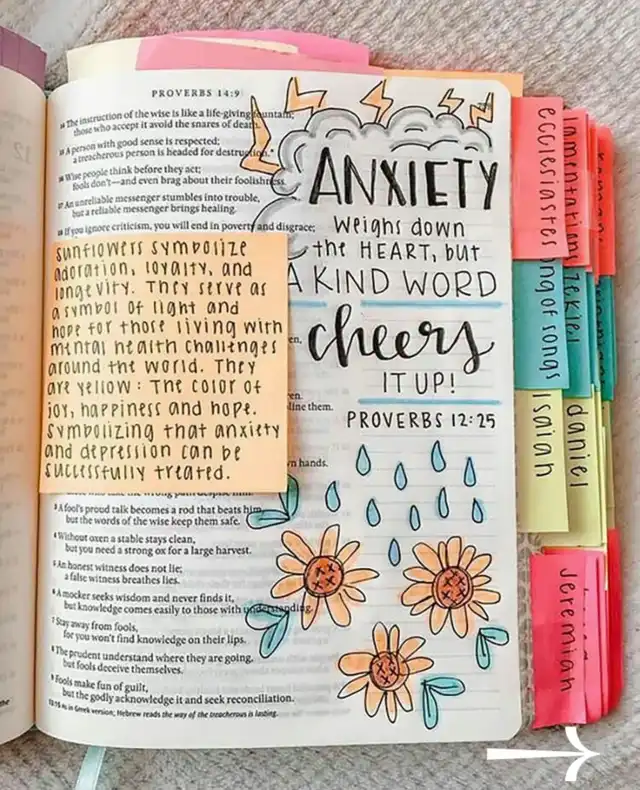 PROVERBS 14:9
14 The instruction of the wise is like a life-giving fountain;
those who accept it avoid the snares of death.
15 A person with good sense is respected;
a treacherous person is headed for destruction.*
16 Wise people think before they act;
fools don't—and even brag about their foolishness.
17 An unreliable messenger stumbles into trouble,
but a reliable messenger brings healing.
18 If you ignore criticism, you will end in poverty and disgrace;
sunflowers symbolize
adoration, loyalty, and
longevity. They serve as
a symbol of light and
hope for those living with
mental health challenges
around the world. They
are yellow: The color of
joy, happiness and hope.
Symbolizing that anxiety
and depression can be
successfully treated.
line them.
hands.
3 A fool's proud talk becomes a rod that beats him,
but the words of the wise keep them safe.
4 Without oxen a stable stays clean,
but you need a strong ox for a large harvest.
5 An honest witness does not lie;
a false witness breathes lies.
6 A mocker seeks wisdom and never finds it,
but knowledge comes easily to those with understanding.
7 Stay away from fools,
for you won't find knowledge on their lips.
8 The prudent understand where they are going,
but fools deceive themselves.
9 Fools make fun of guilt,
but the godly acknowledge it and seek reconciliation.
13:15 As in Greek version; Hebrew reads the way of the treacherous is lasting.
ANXIETY
weighs down
the HEART, but
A KIND WORD
cheers
IT UP!
PROVERBS 12:25
ecclesiastes
song of songs
Isaiah
Jeremiah
lamentations
ezekiel
daniel